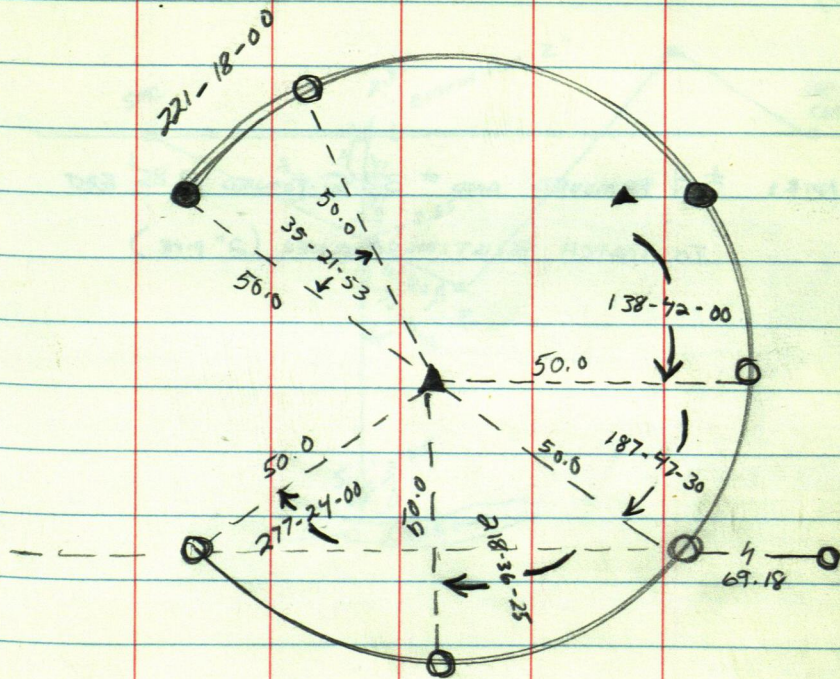 221-18-00
50.0
35-21-53
50.0
138-42-00
50.0
50.0
187-47-30
50.0
277-24-00
50.0
218-36-25
69.18